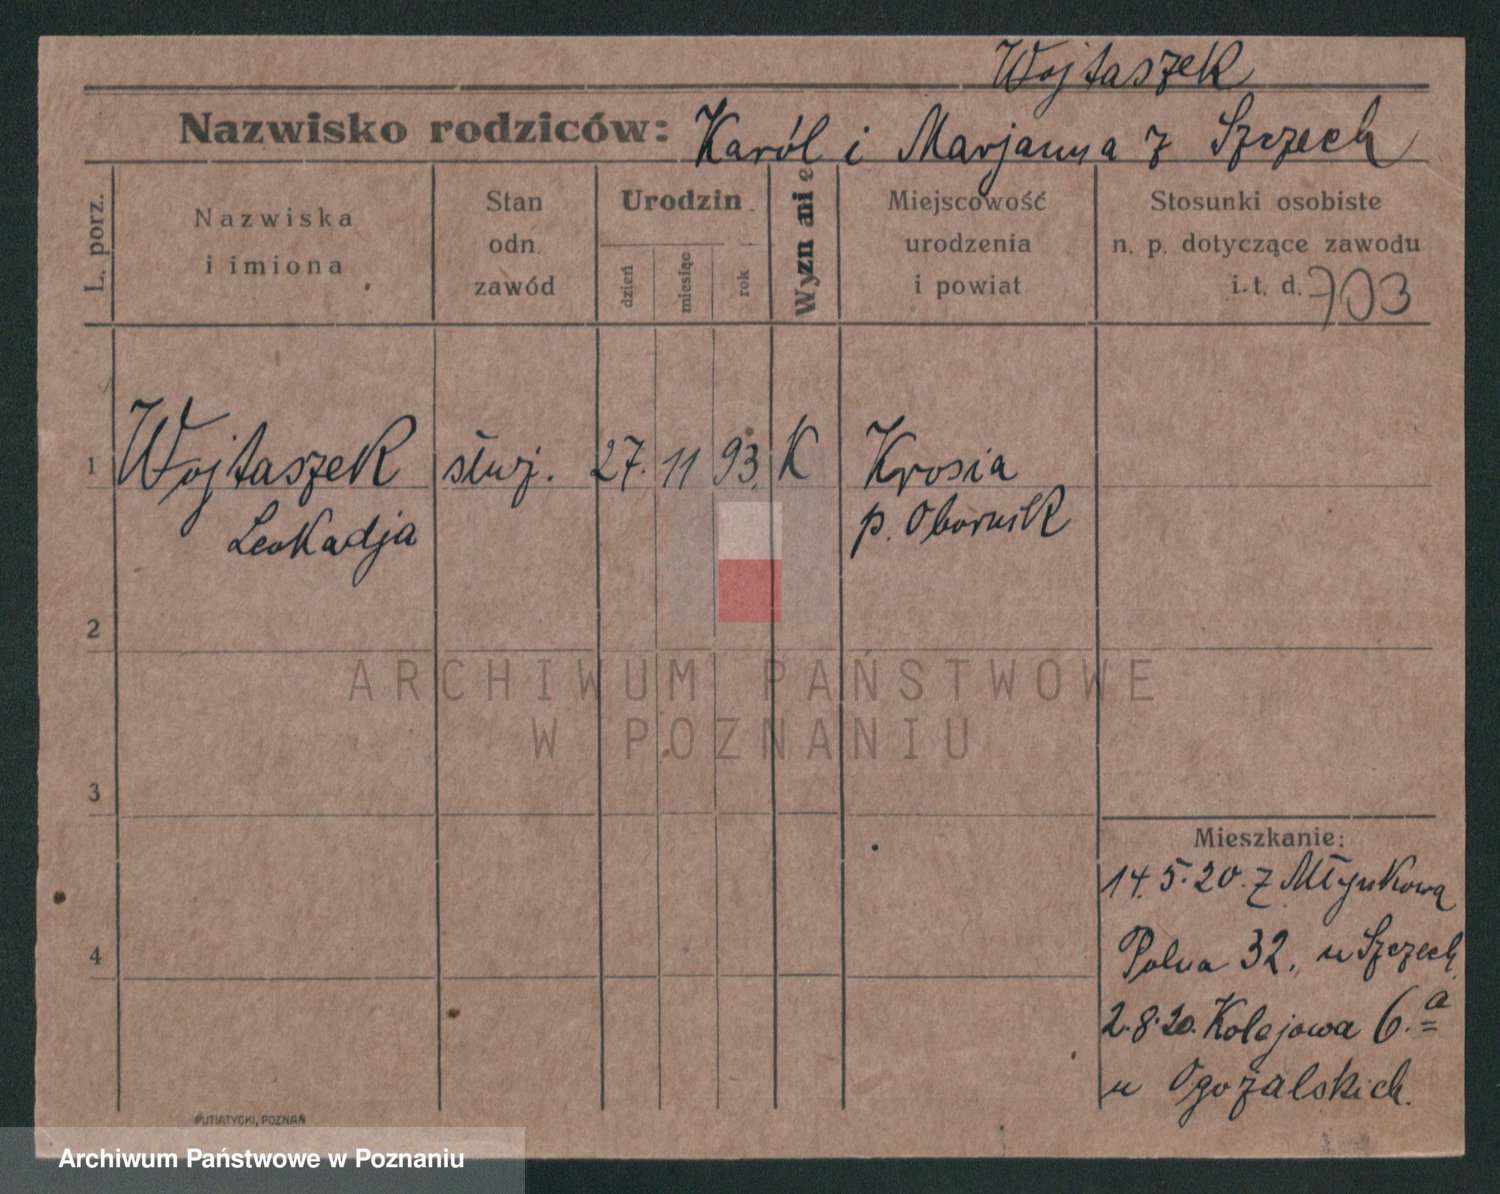 Wojtaszek
Nazwisko rodziców: Karól i Marjanna z Szczech
L. porz.
Nazwiska
i imiona
Stan
odn.
zawód
Urodzin
dzień
miesiąc
rok
Wyznanie
Miejscowość
urodzenia
i powiat
Stosunki osobiste
n. p. dotyczące zawodu
i. t. d. 703
1 Wojtaszek służ. 27. 11 93. K Krosia
Leokadja p. Obornik
2
ARCHIWUM PAŃSTWOWE
W POZNANIU
3
Mieszkanie:
14.5.20. z Młynkowa
Polna 32. u Szczech
4
2.8.20. Kolejowa 6.a
u Ogożalskich.
PUTIATYCKI, POZNAŃ
Archiwum Państwowe w Poznaniu